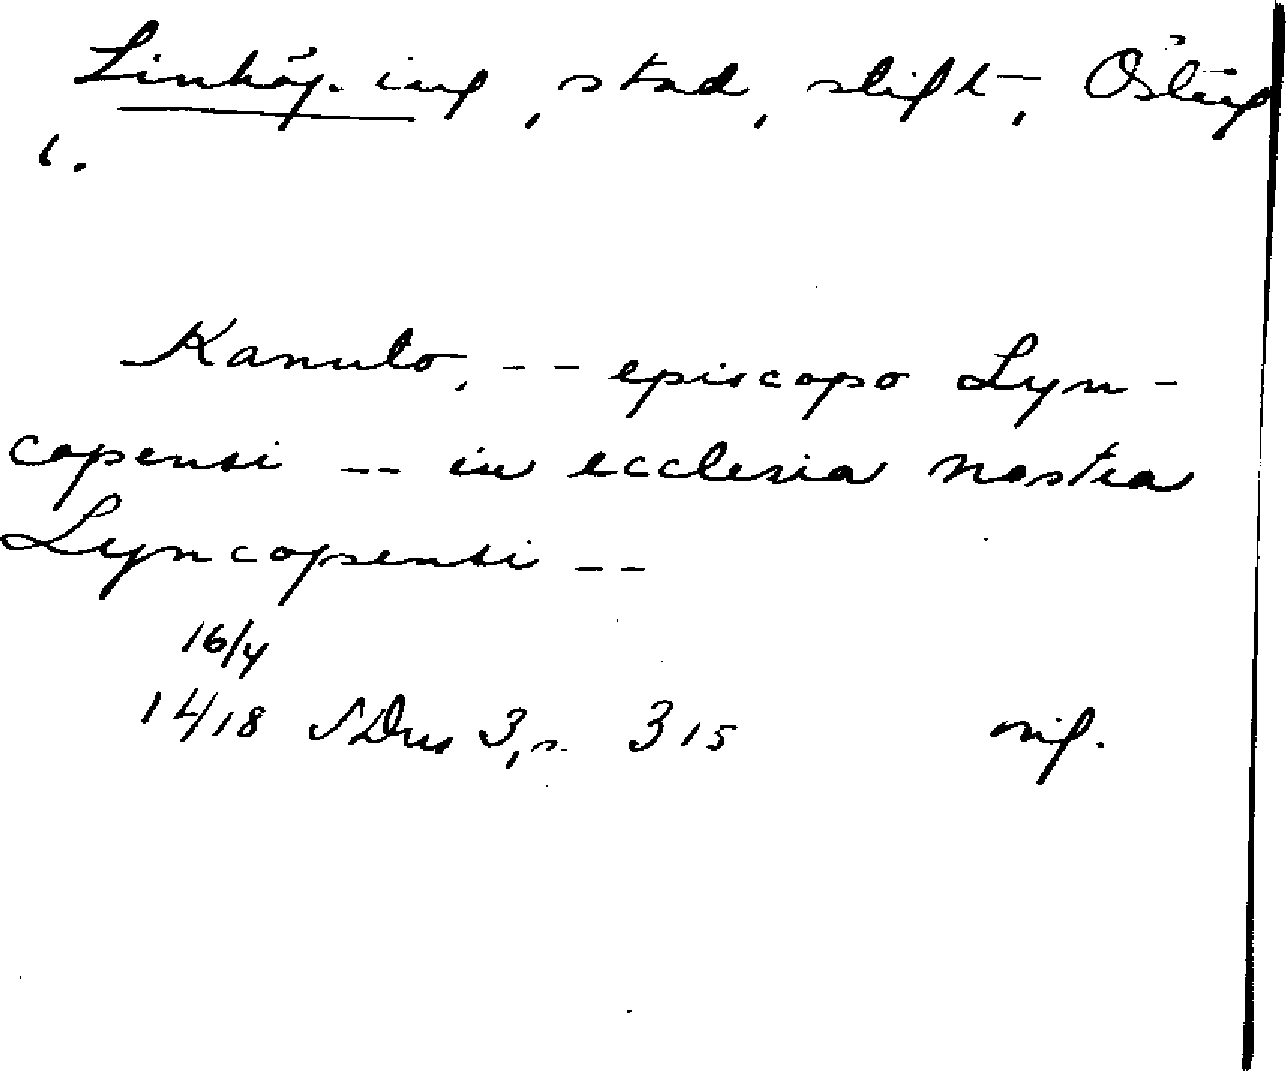 Linköping, stad, stift, Östergl
Kanuto, -- episcopo Lyn-
copensi -- in ecclesia nostra
Lyncopensi --
16/4
1418 SDns 3, s. 315 orig.